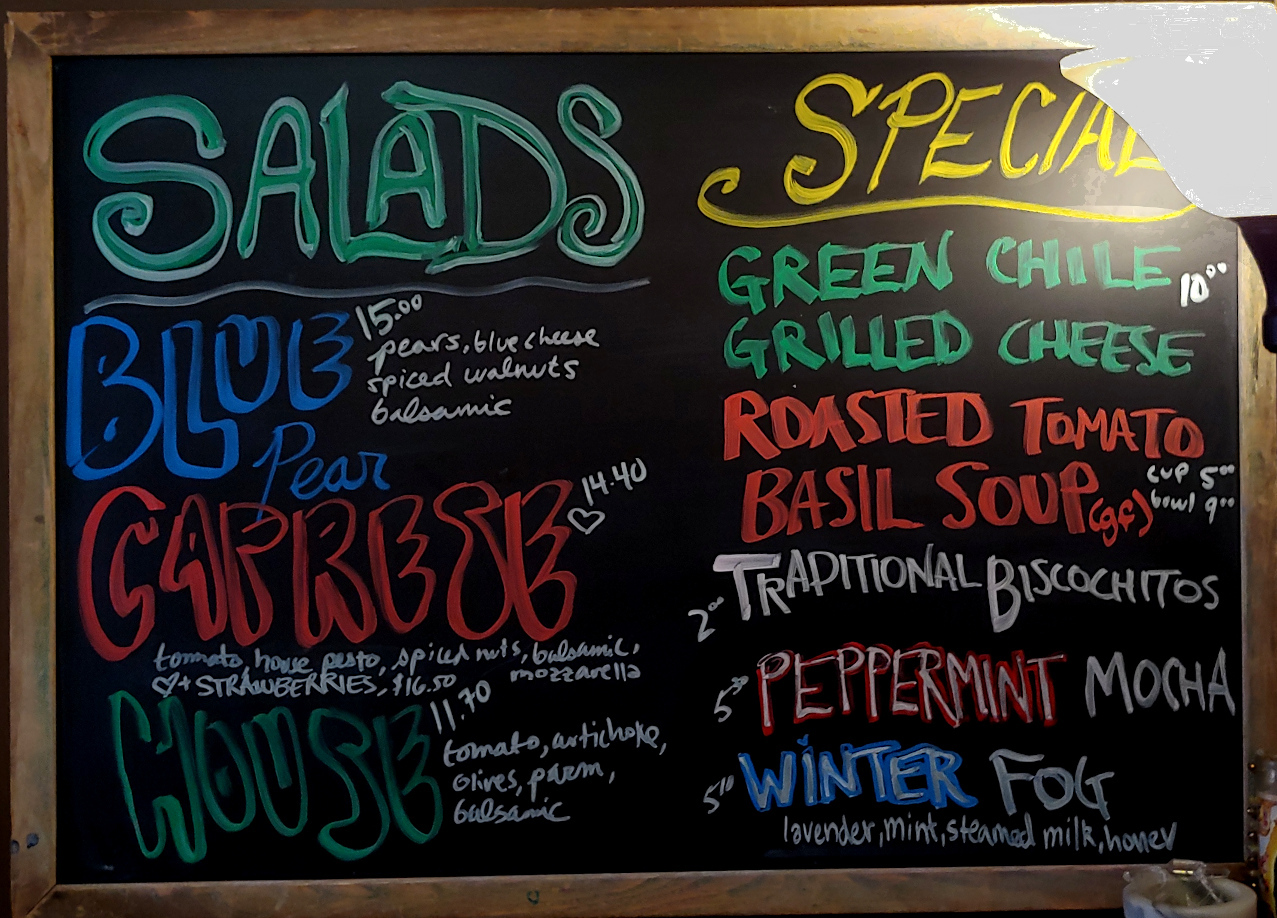 SALADS
BLUE 15.00
Pear
pears, blue cheese
spiced walnuts
balsamic
CAPRESE 14.40
♡
tomato, house pesto, spiced nuts, balsamic,
mozzarella
♡+ STRAWBERRIES, $16.50
HOUSE 11.70
tomato, artichoke,
olives, parm,
balsamic
SPECIAL
GREEN CHILE 10.00
GRILLED CHEESE
ROASTED TOMATO
BASIL SOUP (gf) cup 5.00
bowl 9.00
2.00 TRADITIONAL BISCOCHITOS
PEPPERMINT MOCHA
WINTER FOG
lavender, mint, steamed milk, honey